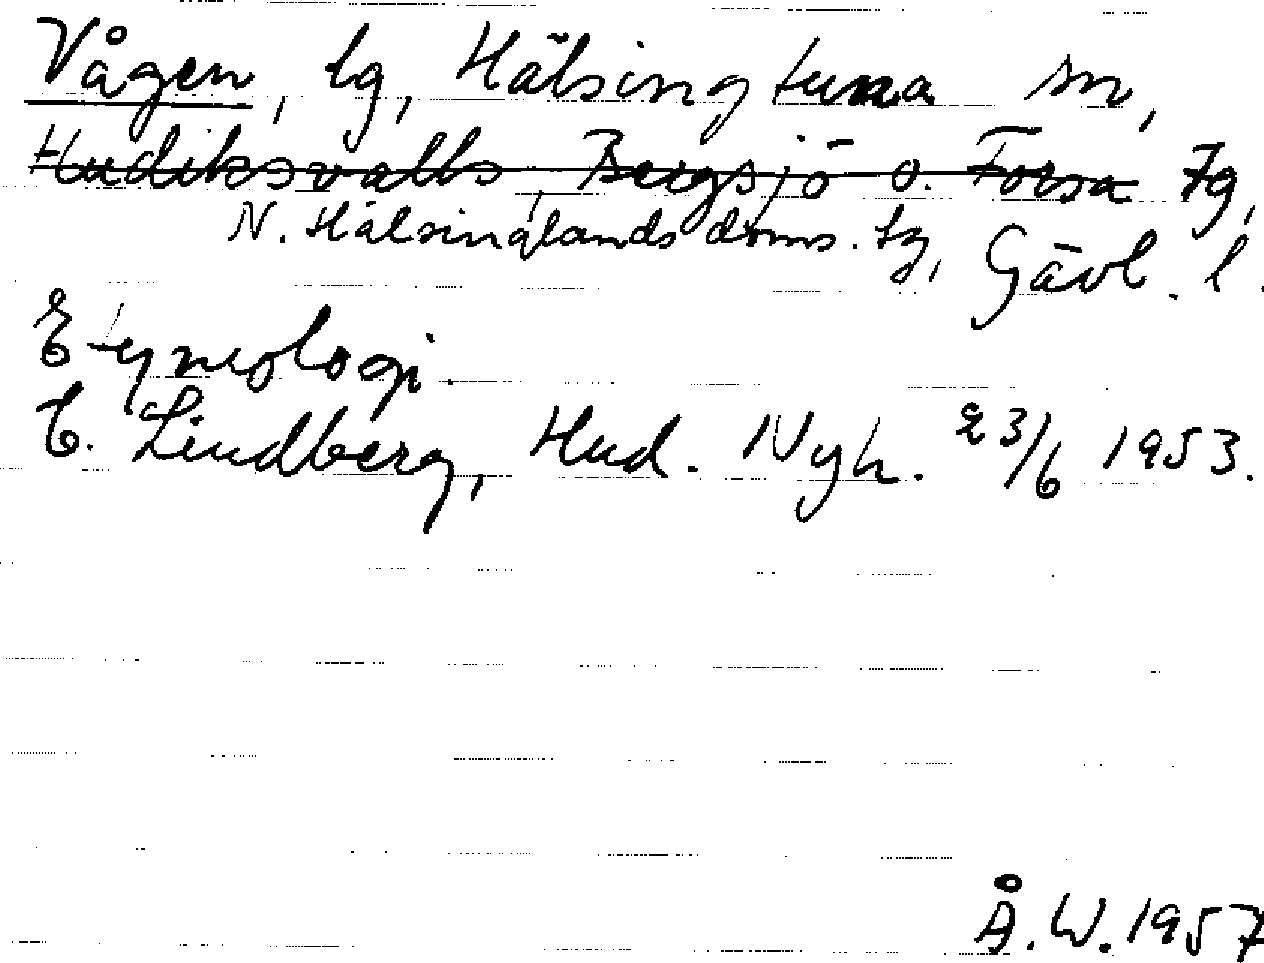 Vågen, tg, Hälsingtuna sn,
Hudiksvalls, Bergsjö o. Forsa tg,
N. Hälsinglands doms. tg, Gävl. l.
Etymologi.
E. Lindberg, Hud. Nyh. 23/6 1953.
Å.W. 1957